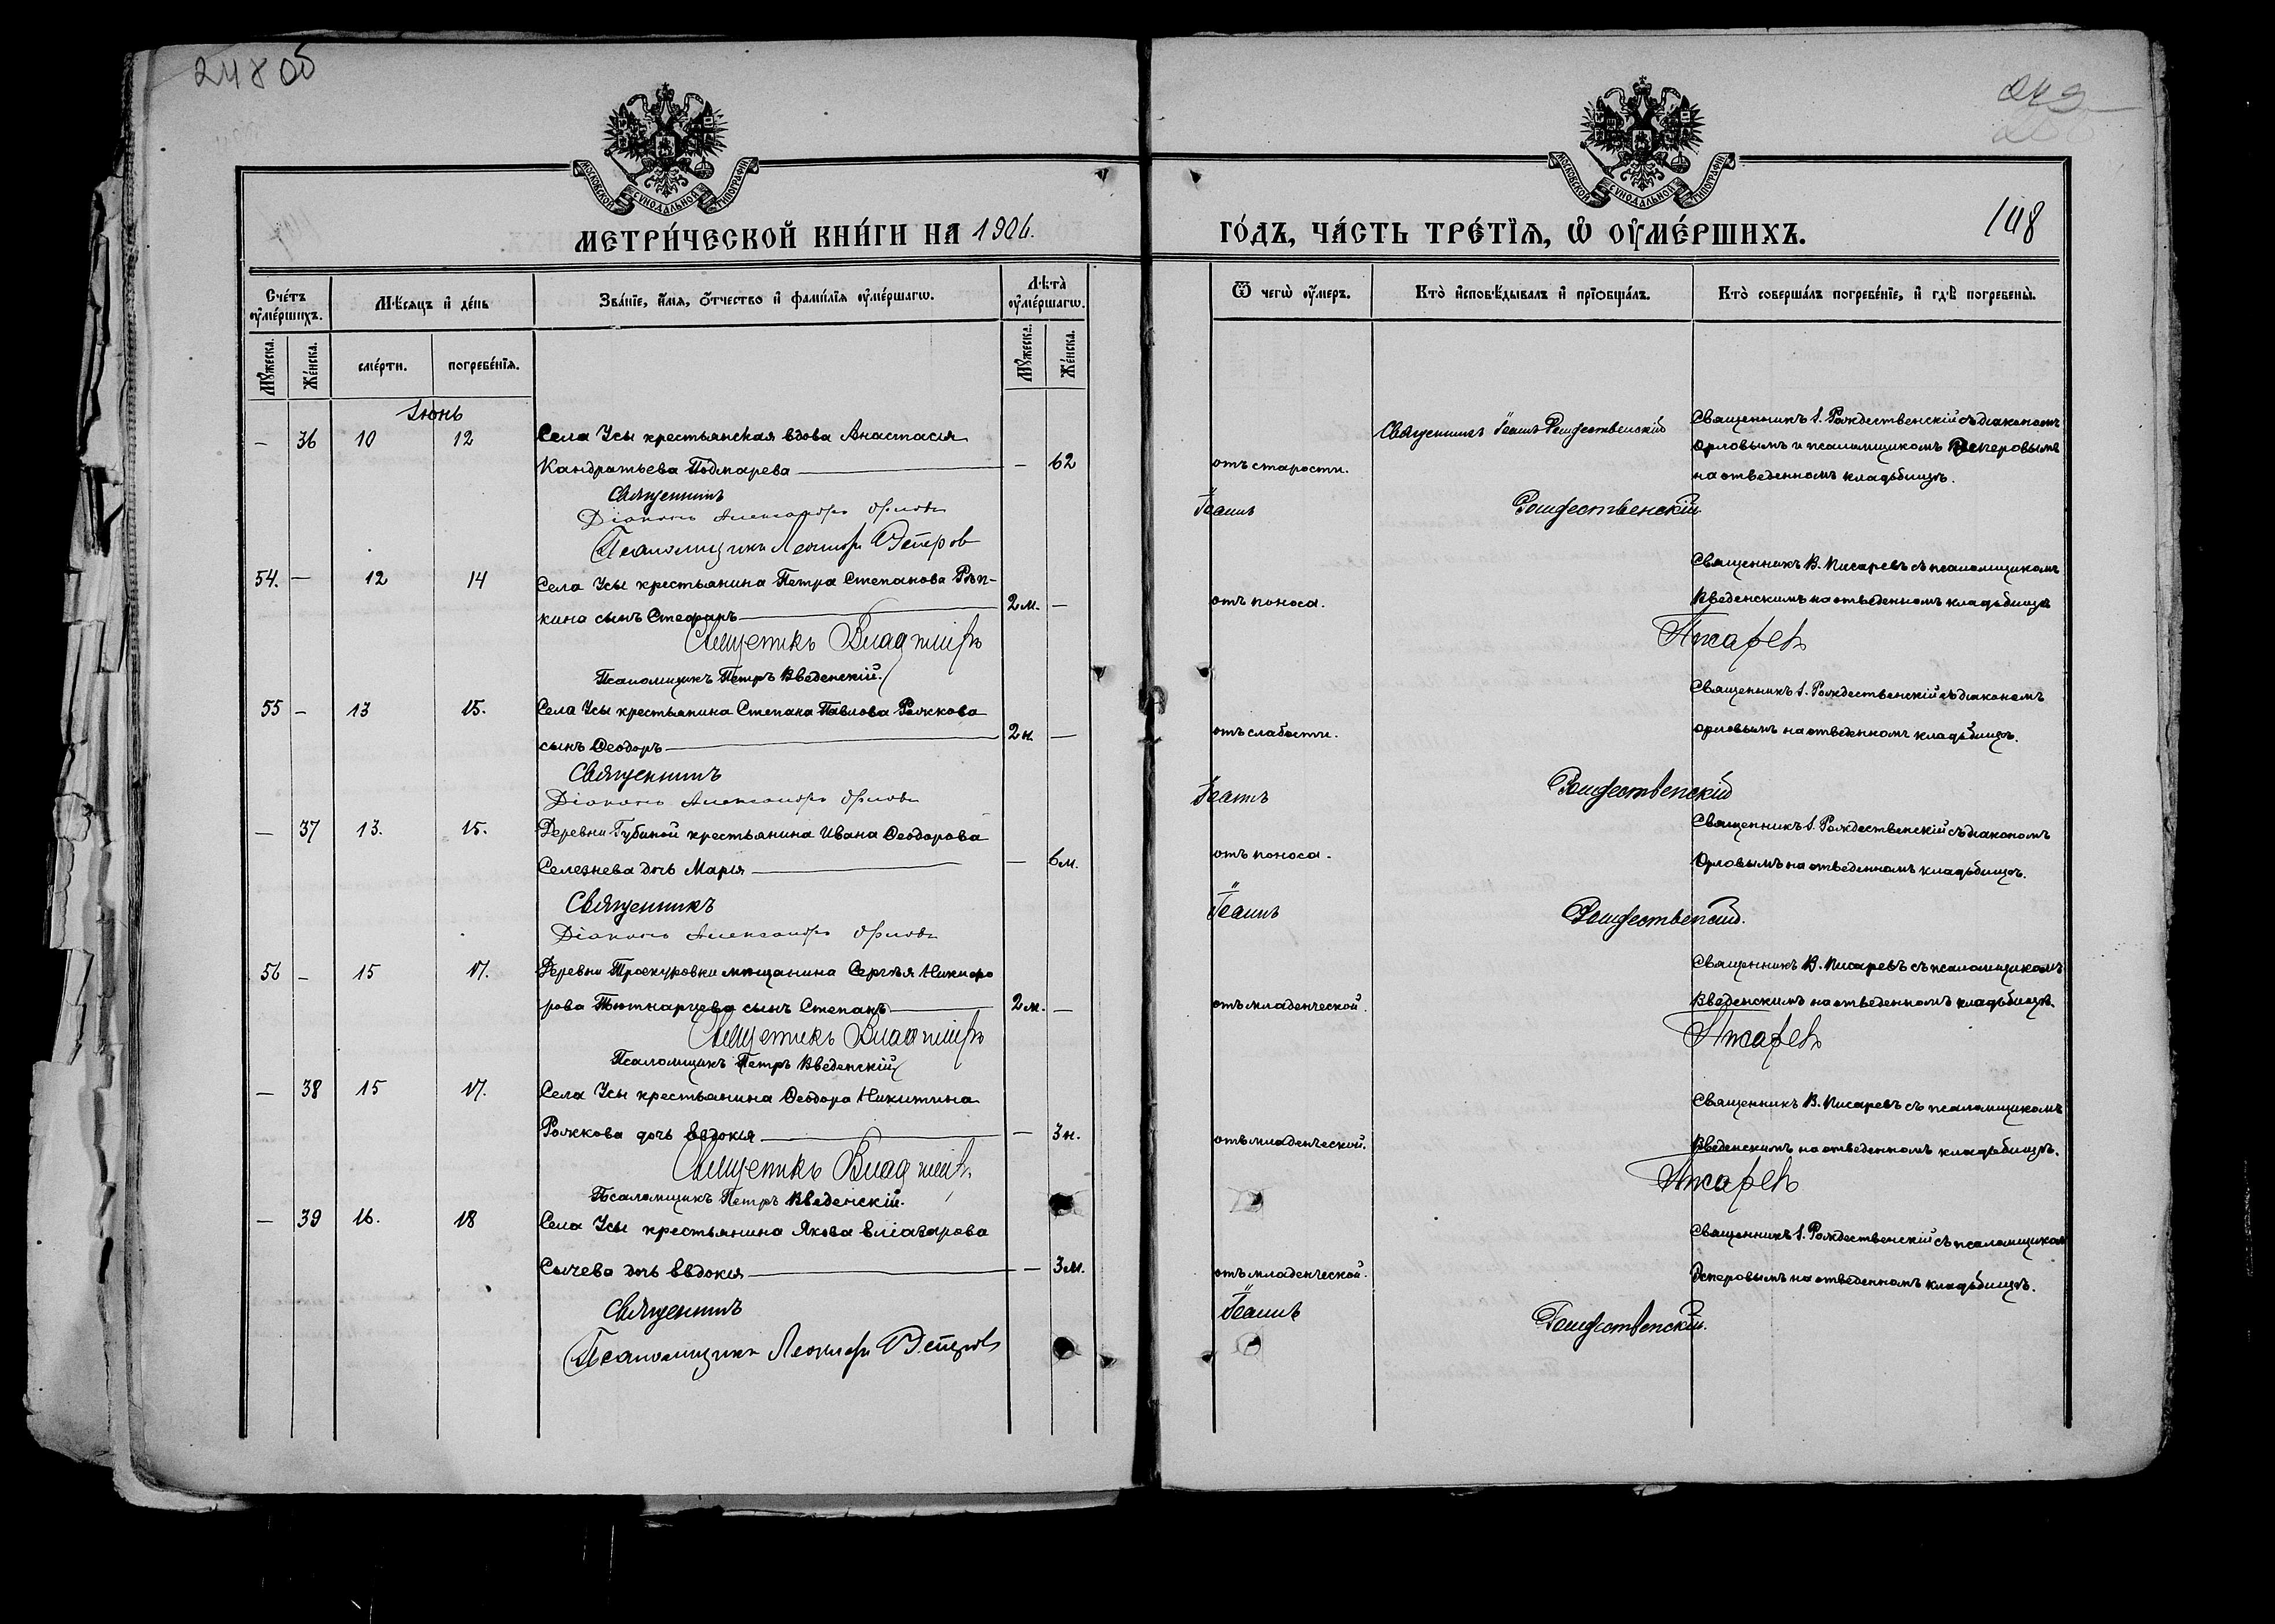 248 об
249
МОСКОВСКОЙ СѴНОДАЛЬНОЙ ТИПОГРАФІИ
МОСКОВСКОЙ СѴНОДАЛЬНОЙ ТИПОГРАФІИ
МЕТРИ́ЧЕСКОЙ КНИ́ГИ НА 1906.
ГО́ДЪ, ЧА́СТЬ ТРЕ́ТЇѦ, Ѡ҆ ОУ҆МЕ́РШИХЪ.
148
Сче́тъ оу҆ме́ршихъ.
Мѣ́сѧцъ и҆ де́нь
Зва́нїе, и҆́мѧ, ѻ҆́тчество и҆ фами́лїѧ оу҆ме́ршагѡ.
Лѣ́та̀ оу҆ме́ршагѡ.
Ѿ чегѡ̀ оу҆́меръ.
Кто̀ и҆сповѣ́дывалъ и҆ прїѡбща́лъ.
Кто̀ соверша́лъ погребе́нїе, и҆ гдѣ̀ погребены̀.
Мꙋ́жеска.
Же́нска.
сме́рти.
погребе́нїѧ.
Мꙋ́жеска.
Же́нска.
Іюнь
— 36 10 12 Села Усы крестьянская вдова Анастасія
Кандратьева — 62
отъ старости.
Священникъ Іоаннъ Рождественскій
Священникъ І. Рождественскій съ діакономъ
Орловымъ и псаломщикомъ
на отведенномъ кладьбищѣ.
Священникъ Іоаннъ Рождественскій.
Діаконъ Александръ Орловъ
Псаломщикъ
54. — 12 14 Села Усы крестьянина Петра Степанова Рѣп-
кина сынъ Стефанъ 2 м. —
отъ поноса.
Священникъ В. Писаревъ съ псаломщикомъ
Введенскимъ на отведенномъ кладьбищѣ
Священникъ Владиміръ Писаревъ
Псаломщикъ Петръ Введенскій.
55 — 13 15. Села Усы крестьянина Степана Павлова Рожкова
сынъ Ѳеодоръ 2 н. —
отъ слабости.
Священникъ І. Рождественскій съ діакономъ
Орловымъ на отведенномъ кладьбищѣ.
Священникъ Іоаннъ Рождественскій
Діаконъ Александръ Орловъ
— 37 13. 15. Деревни Губиной крестьянина Ивана Ѳеодорова
Селезнева дочь Марія — 6 м.
отъ поноса.
Священникъ І. Рождественскій съ діакономъ
Орловымъ на отведенномъ кладьбищѣ.
Священникъ Іоаннъ Рождественскій.
Діаконъ Александръ Орловъ
56 — 15 17. Деревни Проскуровки мѣщанина Сергѣя Никифо
рова сынъ Степанъ 2 м. —
отъ младенческой.
Священникъ В. Писаревъ съ псаломщикомъ
Введенскимъ на отведенномъ кладьбищѣ.
Священникъ Владиміръ Писаревъ
Псаломщикъ Петръ Введенскій
— 38 15 17. Села Усы крестьянина Ѳеодора Никитина
Рожкова дочь Евдокія — 3 н.
отъ младенческой.
Священникъ В. Писаревъ съ псаломщикомъ
Введенскимъ на отведенномъ кладьбищѣ.
Священникъ Владиміръ Писаревъ
Псаломщикъ Петръ Введенскій.
— 39 16. 18 Села Усы крестьянина Якова Еліазарова
Сычева дочь Евдокія — 3 м.
отъ младенческой.
Священникъ І. Рождественскій съ псаломщиком
на отведенномъ кладьбищѣ.
Священникъ Іоаннъ Рождественскій.
Псаломщикъ